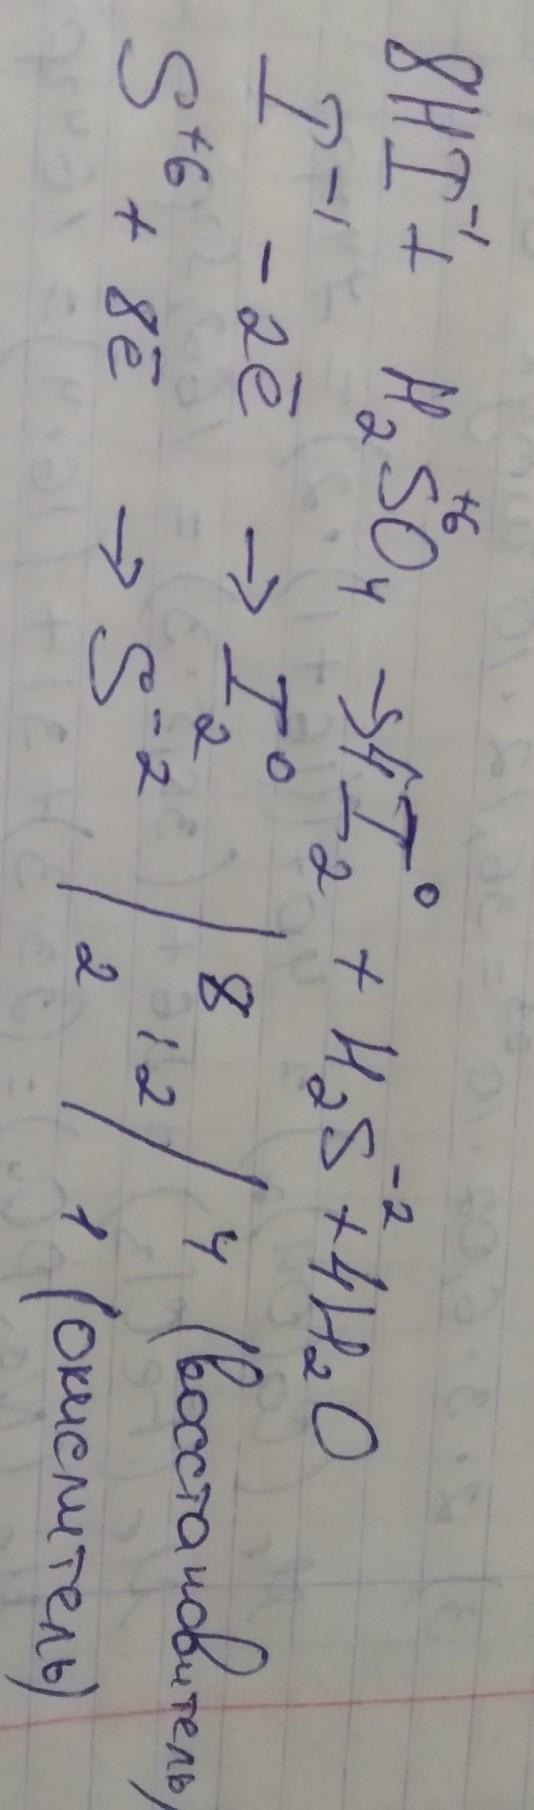 8HI⁻¹ + H₂S⁺⁶O₄ → 4I₂⁰ + H₂S⁻² + 4H₂O
I⁻¹ - 2ē → I₂⁰ | 8 | 4 (восстановитель)
S⁺⁶ + 8ē → S⁻² | 2 :2 | 1 (окислитель)